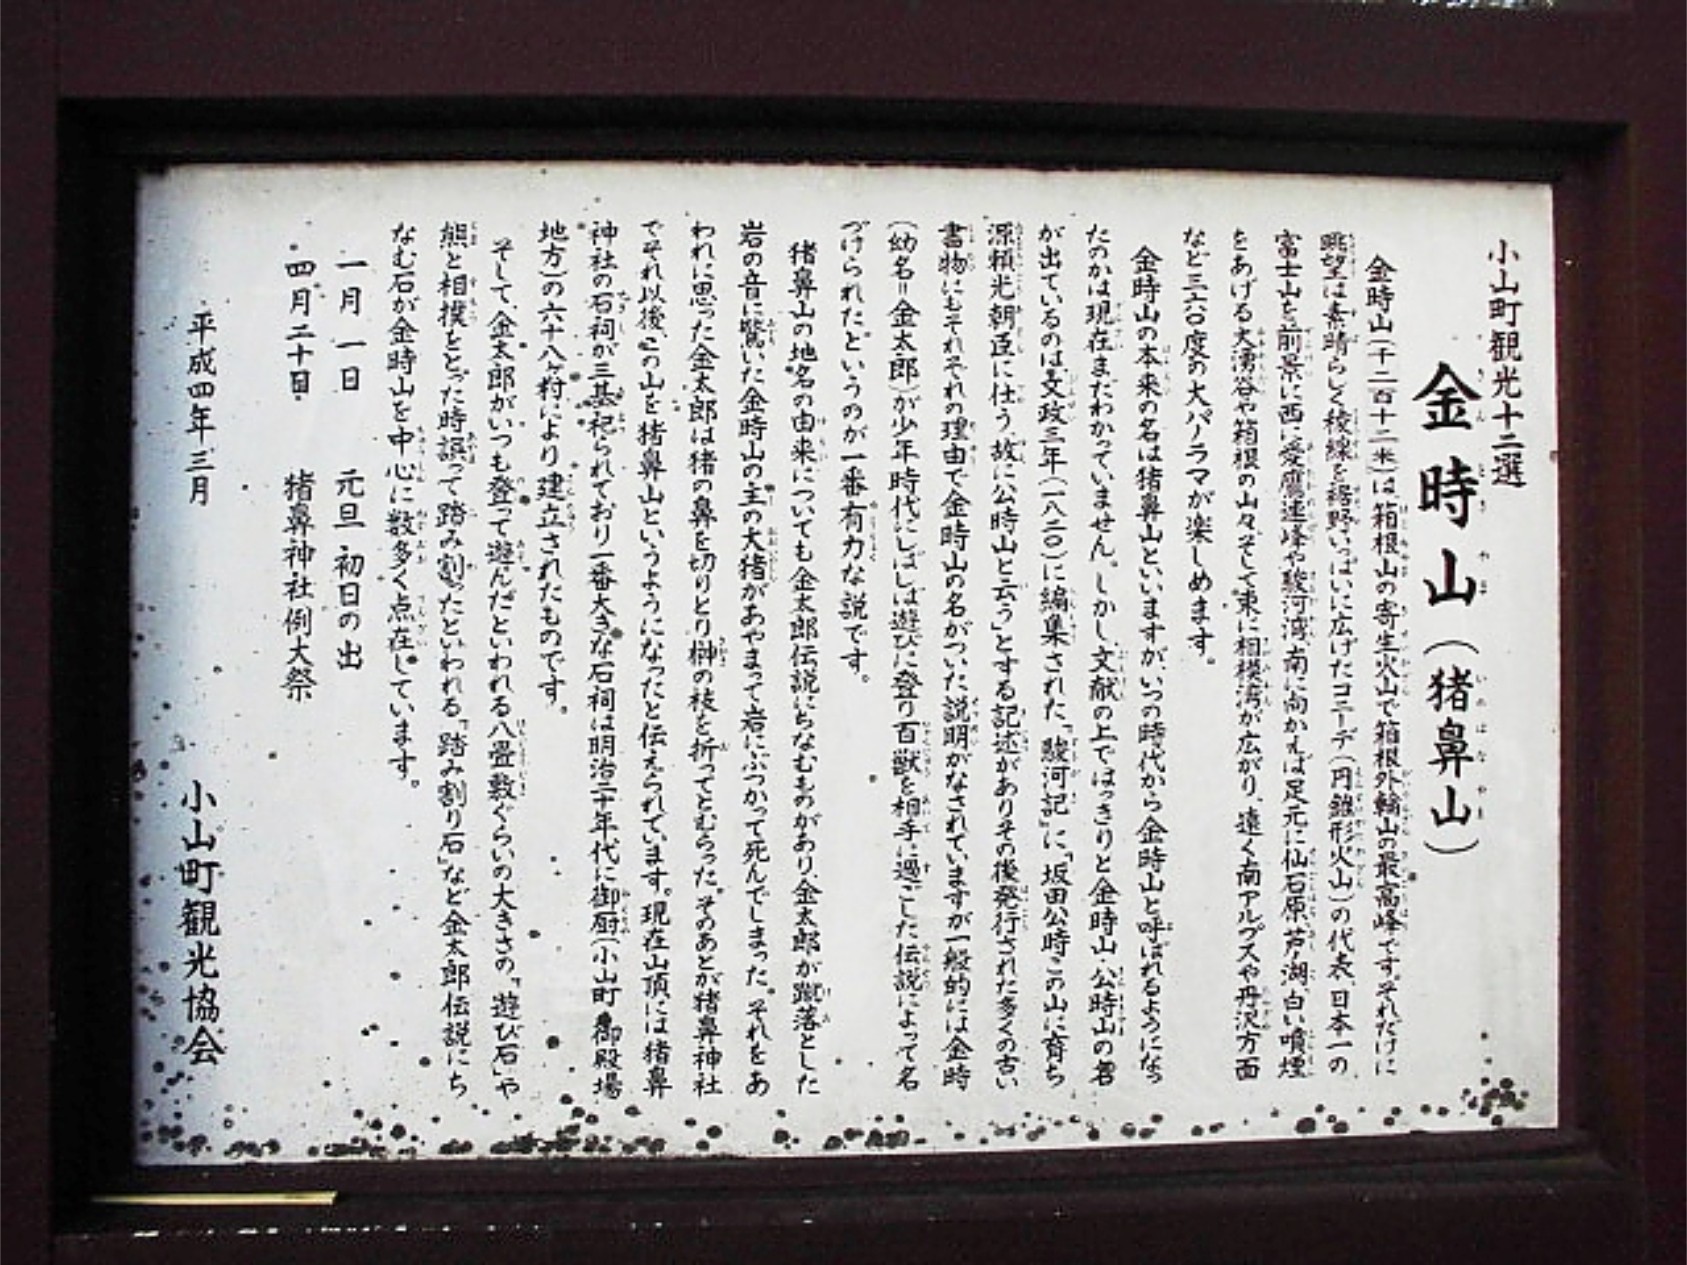 小山町観光十二選
金時山（猪鼻山）
金時山（千二百十二米）は箱根山の寄生火山で箱根外輪山の最高峰です。それだけに
眺望は素晴らしく稜線を裾野いっぱいに広げたコニーデ（円錐形火山）の代表、日本一の
富士山を前景に西に愛鷹連峰や駿河湾、南に向かえば足元に仙石原、芦ノ湖、白い噴煙
をあげる大湧谷や箱根の山々そして東に相模湾が広がり、遠く南アルプスや丹沢方面
など三六〇度の大パノラマが楽しめます。
金時山の本来の名は猪鼻山といいますが、いつの時代から金時山と呼ばれるようになっ
たのかは現在まだわかっていません。しかし、文献の上ではっきりと金時山、公時山の名
が出ているのは、文政三年（一八二〇）に編集された、「駿河記」に、「坂田公時この山に育ち
源頼光朝臣に仕う、故に公時山と云う」とする記述がありその後発行された多くの古い
書物にもそれぞれの理由で金時山の名がついた説明がなされていますが一般的には金時
（幼名＝金太郎）が少年時代にしばしば遊びに登り百獣を相手に過ごした伝説によって名
づけられたというのが一番有力な説です。
猪鼻山の地名の由来についても金太郎伝説にちなむものがあり、金太郎が蹴落とした
岩の音に驚いた金時山の主の大猪があやまって岩にぶつかって死んでしまった。それをあ
われに思った金太郎は猪の鼻を切りとり榊の枝を折ってとむらった。そのあとが猪鼻神社
でそれ以後、この山を猪鼻山というようになったと伝えられています。現在山頂には猪鼻
神社の石祠が三基祀られており一番大きな石祠は明治二十年代に御厨（小山町、御殿場
地方）の六十八ヶ村により建立されたものです。
そして、金太郎がいつも登って遊んだといわれる八畳敷ぐらいの大きさの、「遊び石」や
熊と相撲をとった時誤って踏み割ったといわれる「踏み割り石」など金太郎伝説にち
なむ石が金時山を中心に数多く点在しています。
一月一日 元旦初日の出
四月二十日 猪鼻神社例大祭
平成四年三月
小山町観光協会